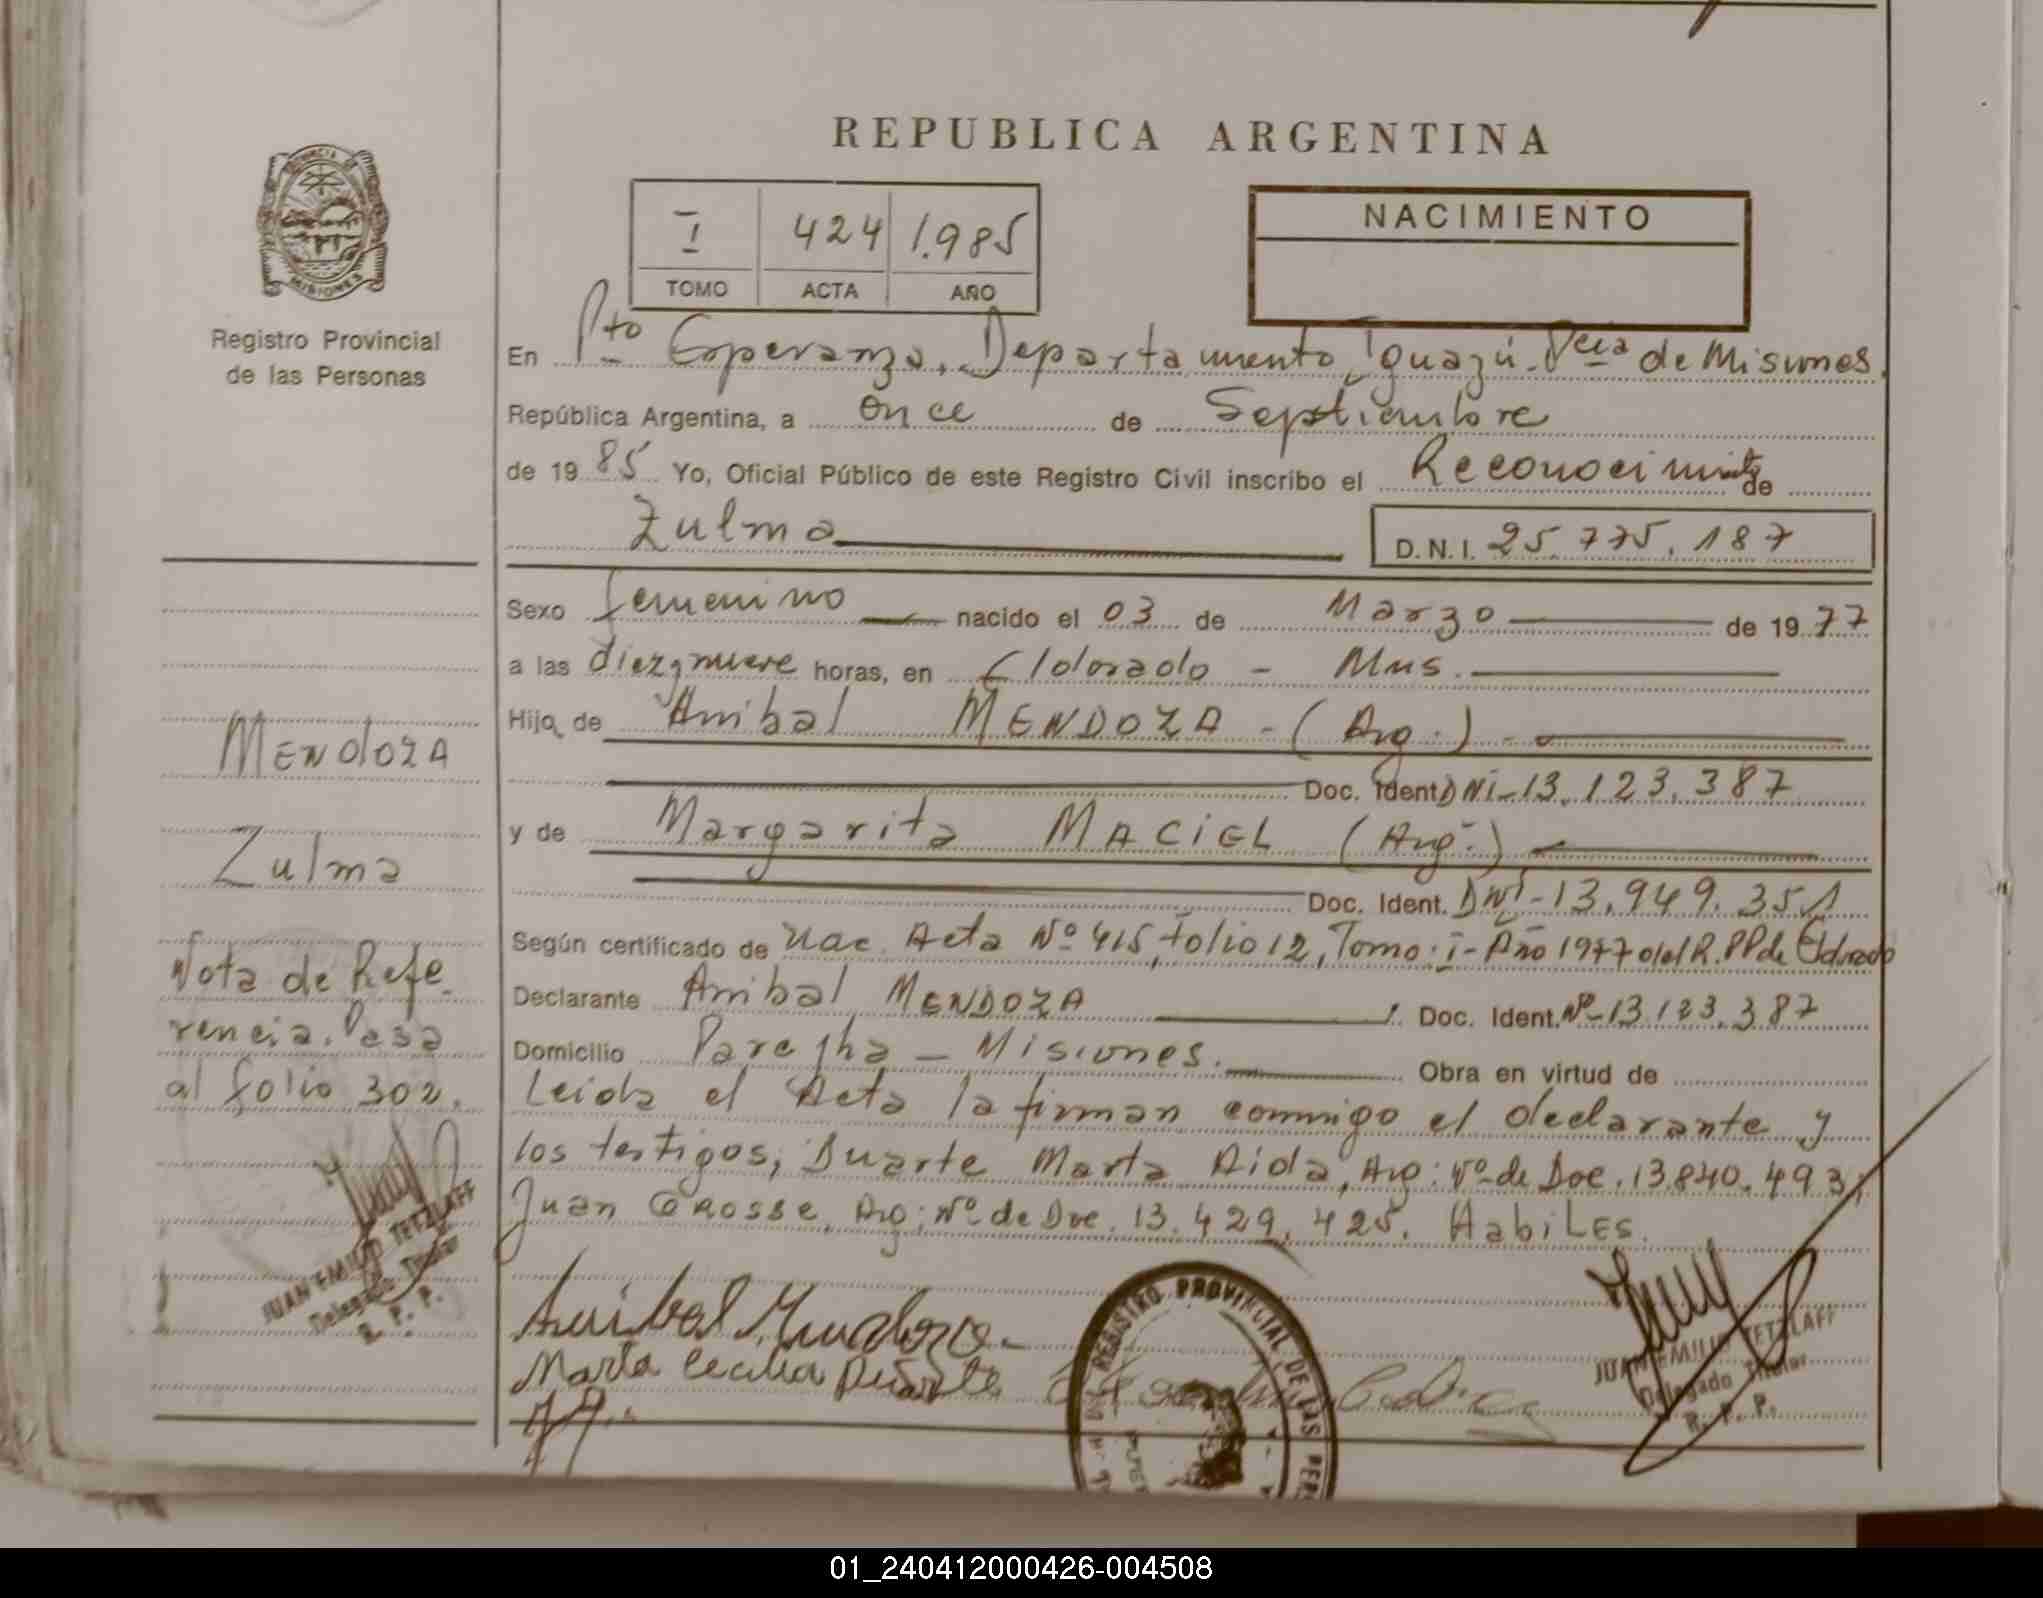 REPUBLICA ARGENTINA
PROVINCIA DE
MISIONES
Registro Provincial
de las Personas
I 424 1.985
TOMO ACTA AÑO
NACIMIENTO
En Pto Esperanza, Departamento Iguazú - Pcia de Misiones.
República Argentina, a once de Septiembre
de 19 85 Yo, Oficial Público de este Registro Civil inscribo el Reconocimiento de
Zulma D.N.I. 25.775.187
Sexo femenino nacido el 03 de Marzo de 19 77
a las diez y nueve horas, en Eldorado - Mnes.
Hijo de Anibal MENDOZA - (Arg.) -
Doc. Ident. DNi-13.123.387
y de Margarita MACIEL (Arg.)
Doc. Ident. DNi-13.949.351
Según certificado de Nac. Acta Nº 415, folio 12, Tomo: I - Año 1977 del R.PP de Eldorado
Declarante Anibal MENDOZA Doc. Ident. Nº-13.123.387
Domicilio - Misiones. Obra en virtud de
Leida el Acta la firman conmigo el declarante y
los testigos, Duarte Marta Aida, Arg: Nº de Doc. 13.840.493;
Juan GROSSE, Arg: Nº de Doc. 13.429.425. HabiLES.
MENdOZA
Zulma
Nota de Refe-
rencia. Pasa
al folio 302.
JUAN EMILIO TETZLAFF
Delegado Titular
R. P. P.
Anibal Mendoza
Marta Cecilia Duarte
REGISTRO PROVINCIAL DE LAS PERS
JUAN EMILIO TETZLAFF
Delegado Titular
R. P. P.
01_240412000426-004508